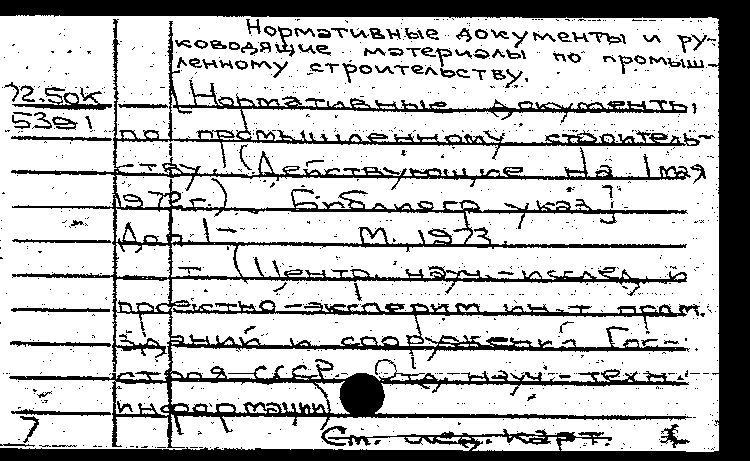 Нормативные документы и ру-
ководящие материалы по промыш-
ленному строительству.
72.50к [Нормативные документы
539 по промышленному строитель-
ству. (Действующие на 1 мая
1972г.) Библиогр. указ.]
Доп. 1- М., 1973.
- (Центр. науч.-исслед. и
проектно-эксперим. ин-т пром.
зданий и сооружений Гос-
строя СССР. Отд. науч.-техн.
информации)
7 См. след. карт.